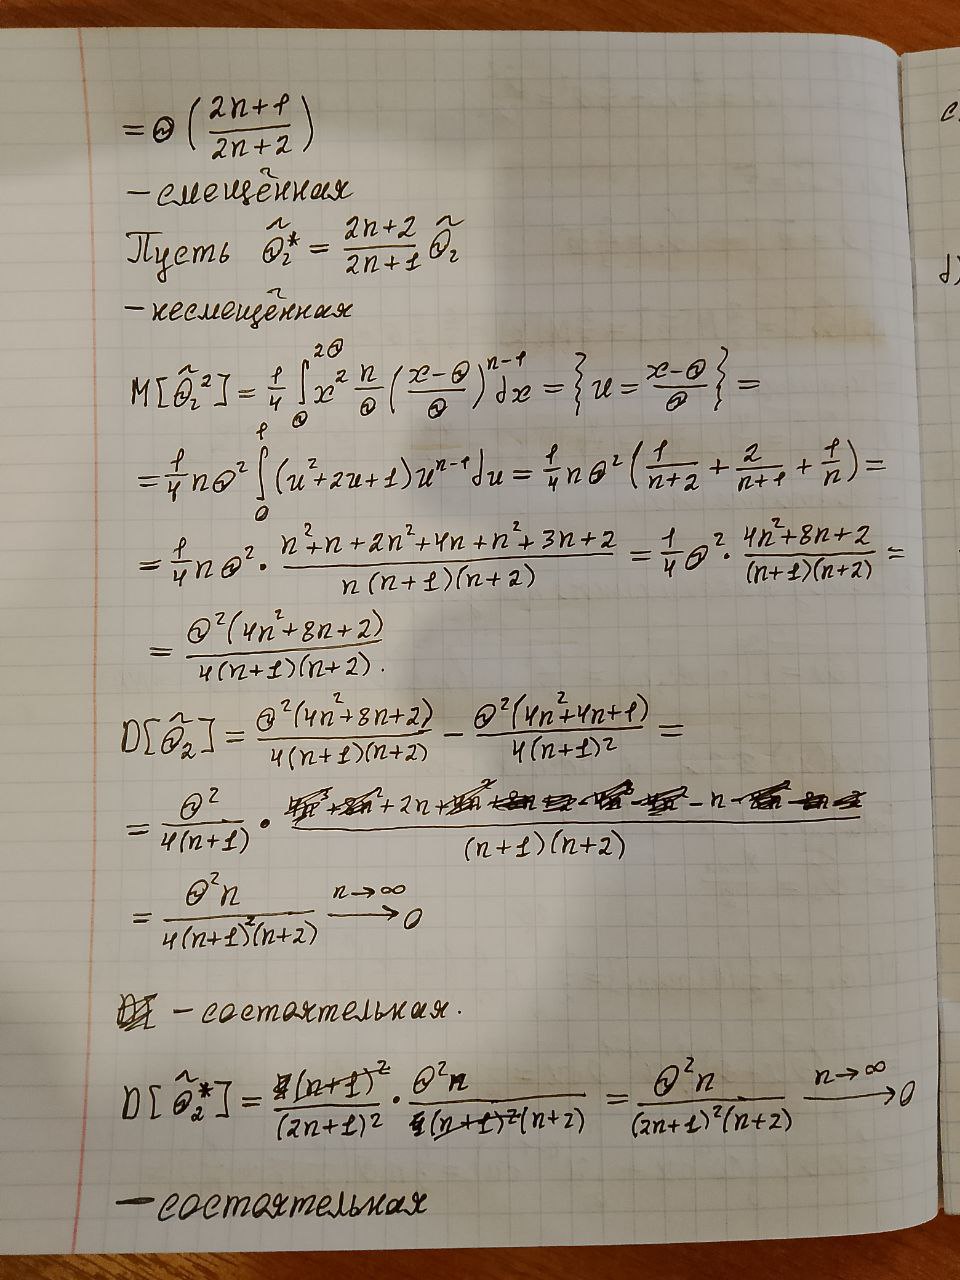 = Θ ( (2n+1)/(2n+2) )
– смещённая
Пусть Θ̃₂* = (2n+2)/(2n+1) Θ̃₂
– несмещённая
M[Θ̃₂²] = 1/4 ∫_Θ^{2Θ} x² n/Θ ((x–Θ)/Θ)^{n-1} dx = { u = (x–Θ)/Θ } =
= 1/4 nΘ² ∫_0^1 (u²+2u+1)u^{n-1} du = 1/4 nΘ² ( 1/(n+2) + 2/(n+1) + 1/n ) =
= 1/4 nΘ² · (n²+n+2n²+4n+n²+3n+2)/(n(n+1)(n+2)) = 1/4 Θ² · (4n²+8n+2)/((n+1)(n+2)) =
= Θ²(4n²+8n+2)/(4(n+1)(n+2)).
D[Θ̃₂] = Θ²(4n²+8n+2)/(4(n+1)(n+2)) – Θ²(4n²+4n+1)/(4(n+1)²) =
= Θ²/(4(n+1)) · (+2n+ –n–)/((n+1)(n+2))
= Θ²n/(4(n+1)²(n+2)) →^{n→∞} 0
– состоятельная.
D[Θ̃₂*] = 4(n+1)²/(2n+1)² · Θ²n/(4(n+1)²(n+2)) = Θ²n/((2n+1)²(n+2)) →^{n→∞} 0
– состоятельная
с
d)